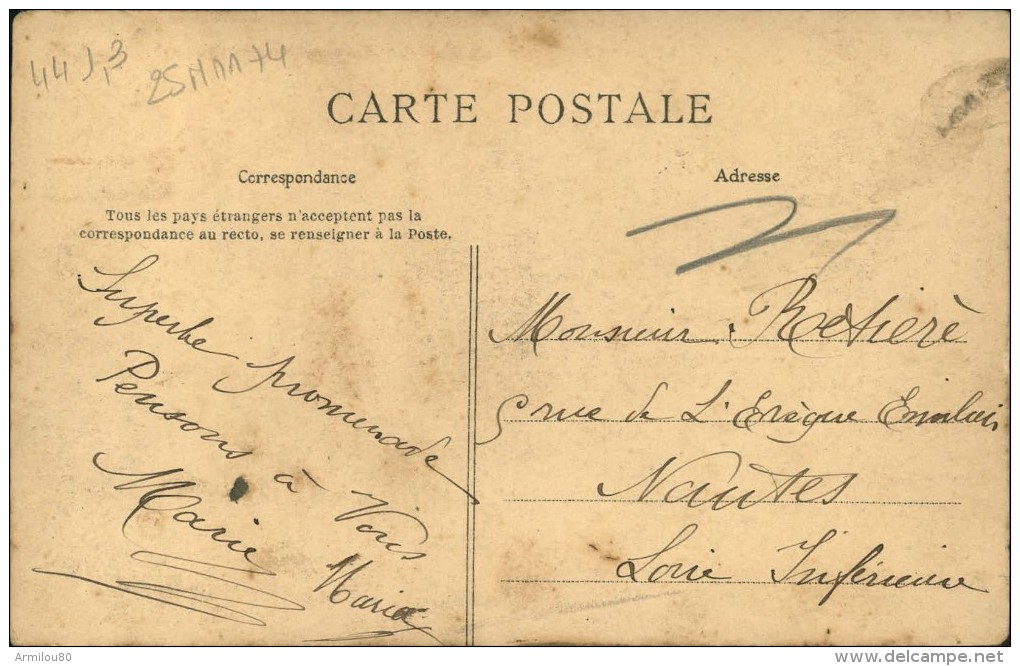 44 J,3
25N1174
CARTE POSTALE
Correspondance
Adresse
Tous les pays étrangers n'acceptent pas la
correspondance au recto, se renseigner à la Poste.
Superbe promenade
Pensons à Vous
Marie
Maria
Monsieur Retière
9 rue de L'Evêque Emilien
Nantes
Loire Inférieure
Armilou80